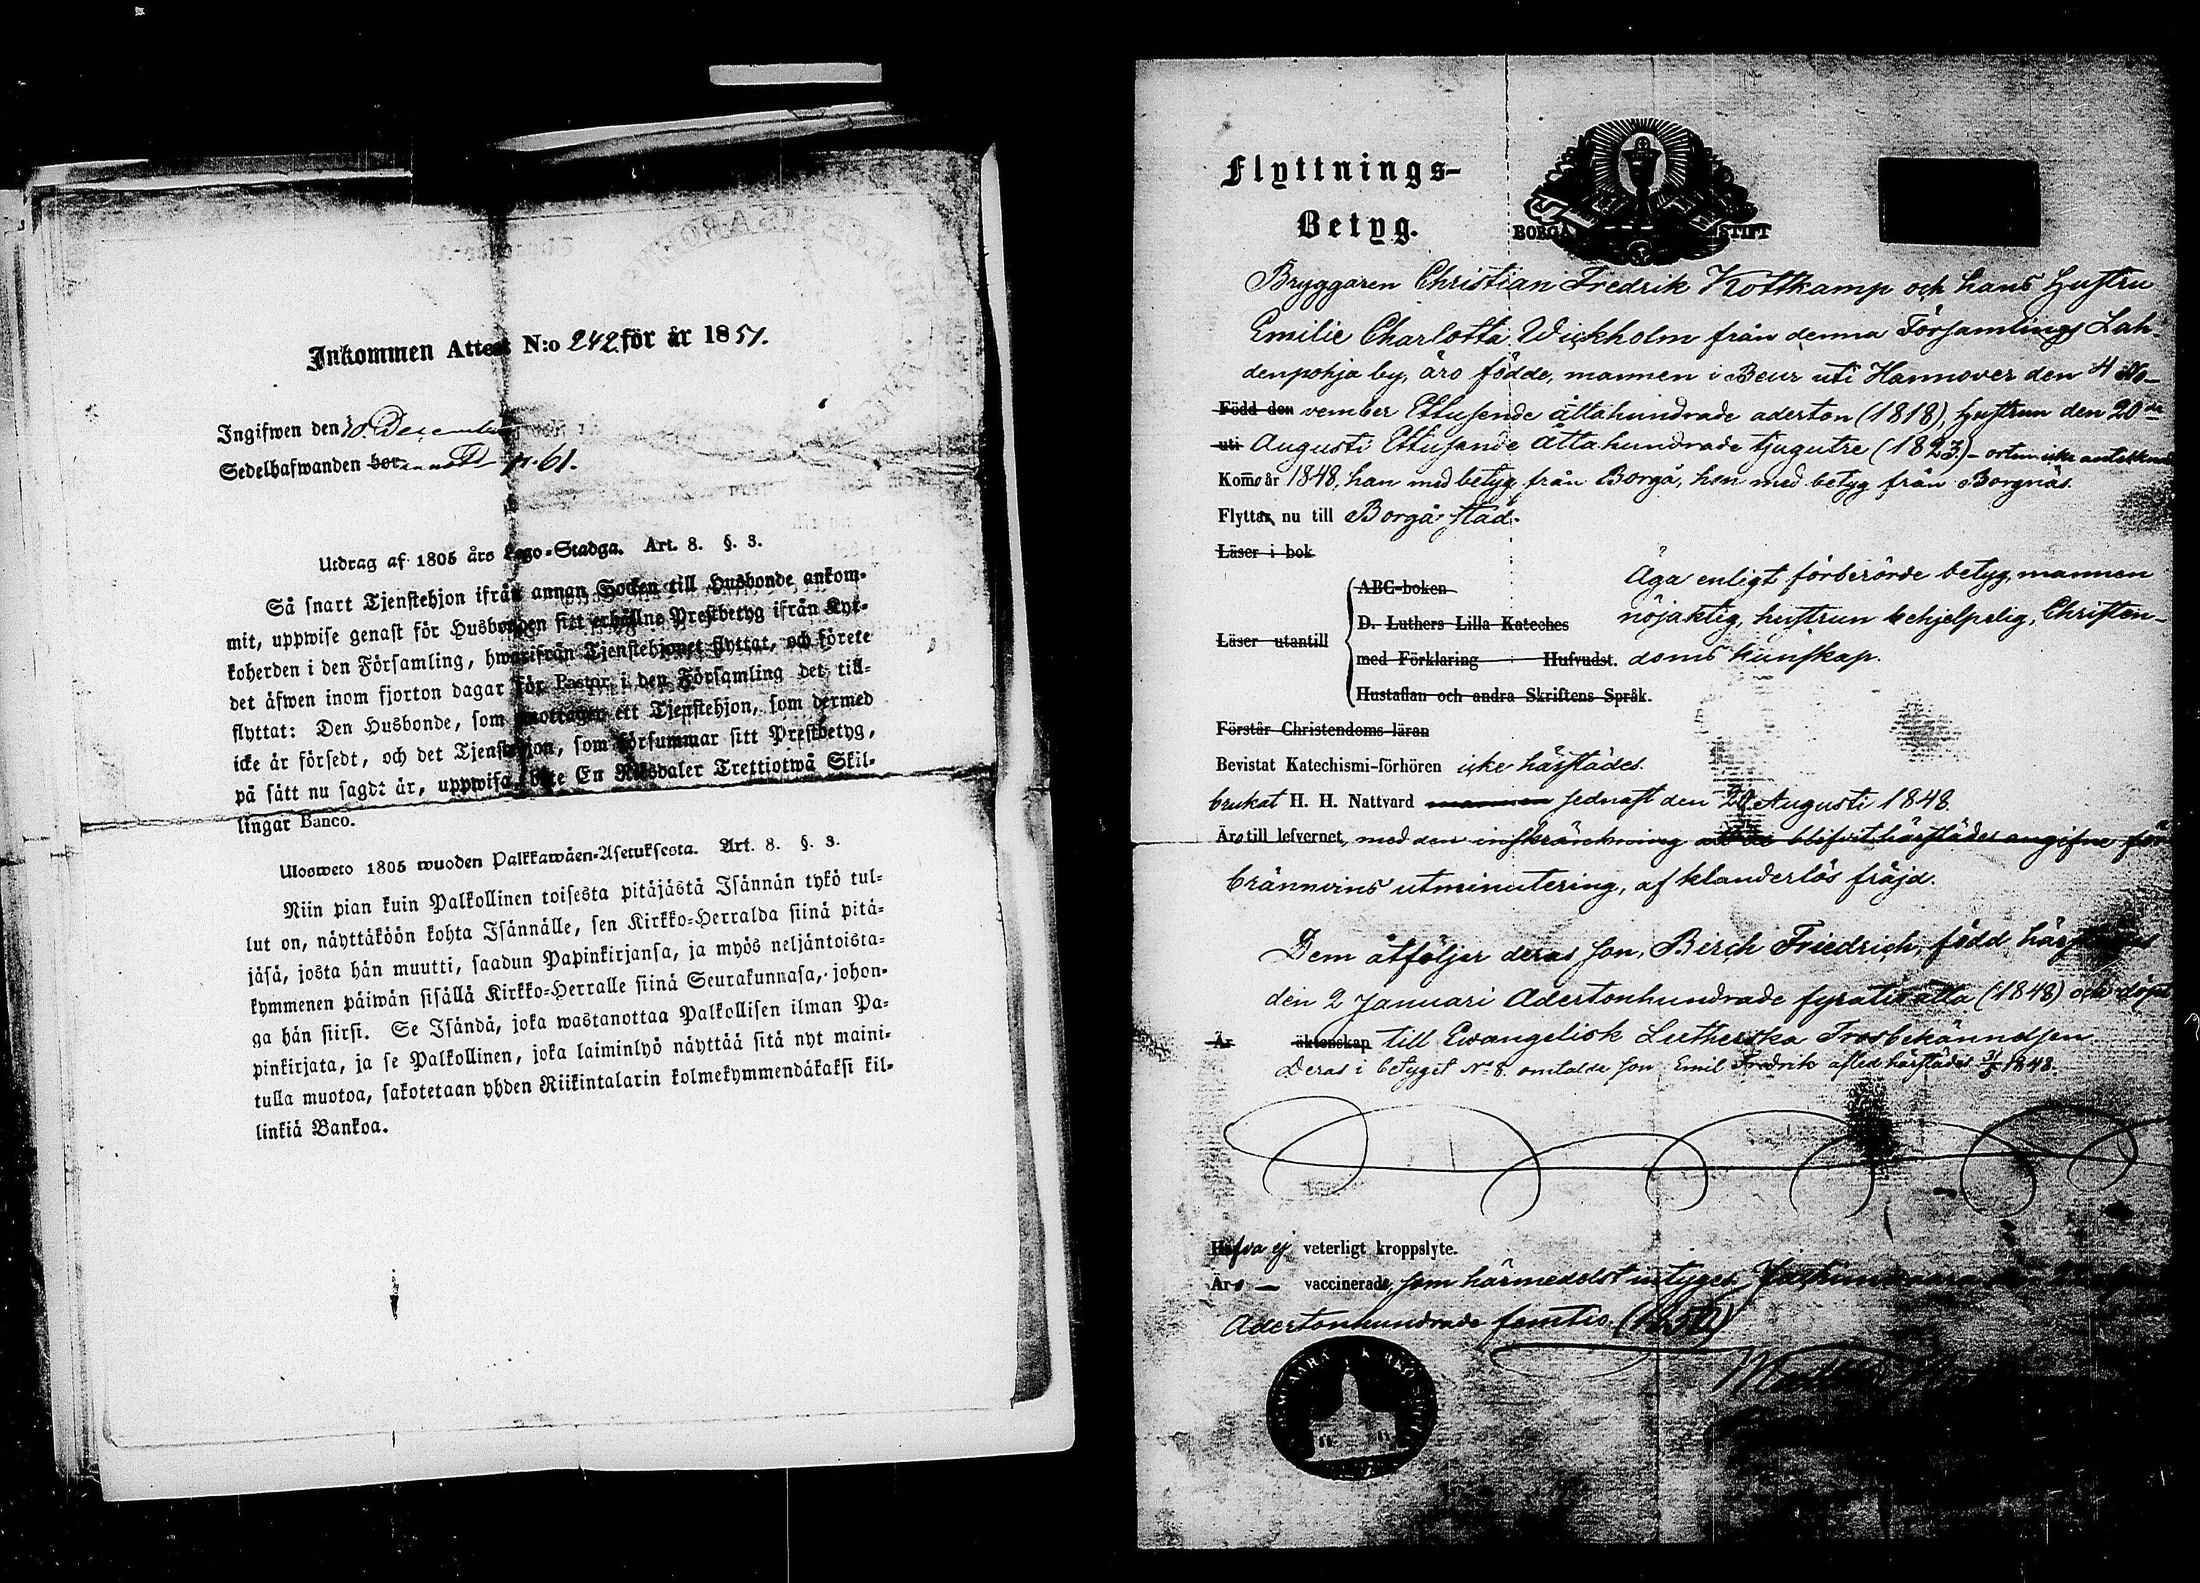 Inkommen Attest N:o 242 för år 1851.
Ingifwen den 10 December
Sedelhafwanden p. 61.
Utdrag af 1805 års Lego-Stadga. Art. 8. §. 3.
Så snart Tjenstehjon ifrån annan Socken till Husbonde ankom-
mit, uppwise genast för Husbonden sitt erhållne Prestbetyg ifrån Kyr-
koherden i den Församling, hwarifrån Tjenstehjonet flyttat, och förete
det äfwen inom fjorton dagar för Pastor i den Församling det till-
flyttat: Den Husbonde, som emottager ett Tjenstehjon, som dermed
icke är försedt, och det Tjenstehjon, som försummar sitt Prestbetyg,
på sätt nu sagdt är, uppwisa, böte En Riksdaler Trettiotwå Skil-
lingar Banco.
Ulosweto 1805 wuoden Palkkawäen-Asetuksesta. Art. 8. §. 3.
Niin pian kuin Palkollinen toisesta pitäjästä Isännän tykö tul-
lut on, näyttäköön kohta Isännälle, sen Kirkko-Herralda siinä pitä-
jäsä, josta hän muutti, saadun Papinkirjansa, ja myös neljäntoista-
kymmenen päiwän sisällä Kirkko-Herralle siinä Seurakunnasa, johon-
ga hän siirsi. Se Isändä, joka wastanottaa Palkollisen ilman Pa-
pinkirjata, ja se Palkollinen, joka laiminlyö näyttää sitä nyt maini-
tulla muotoa, sakotetaan yhden Riikintalarin kolmekymmendäkaksi kil-
linkiä Bankoa.
Flyttnings-
Betyg.
BORGÅ STIFT
Bryggaren Christian Fredrik Kottkamp och hans Hustru
Emilie Charlotta Wickholm från denna Församlings Lah-
denpohja by, äro födde, mannen i Beur uti Hannover den 4 No-
Född den vember Ettusende åttahundrade aderton (1818), hustrun den 20de
uti Augusti Ettusende Åttahundrade tjugutre (1823) - orten icke
Komo år 1848, han med betyg från Borgå, hon med betyg från Borgnäs.
Flyttar nu till Borgå stad.
Läser i bok
Äga enligt förberörde betyg, mannen
ABC-boken
nöjaktig, hustrun behjelpelig, Christen-
Läser utantill D. Luthers Lilla Kateches
med Förklaring Hufvudst. doms kunskap.
Hustaflan och andra Skriftens Språk.
Förstår Christendoms-läran
Bevistat Katechismi-förhören icke härstädes.
brukat H. H. Nattvard sednast den 20 Augusti 1848.
Äro till lefvernet, med den inskränkning att de blifvit härstädes angifne för
brännvins utminutering, af klanderlös fräjd.
Dem åtföljer deras son, Birch Friedrich, född härstädes
den 2 Januari Adertonhundrade fyratio åtta (1848) och döpt
Är äktenskap till Evangelisk Lutherska Trosbekännelsen
Deras i betyget No 8 omtalde son Emil Fredrik afled härstädes 1848.
Hafva ej veterligt kroppslyte.
Äro — vaccinerade, som härmedelst intygas
Adertonhundrade femtio (1850)